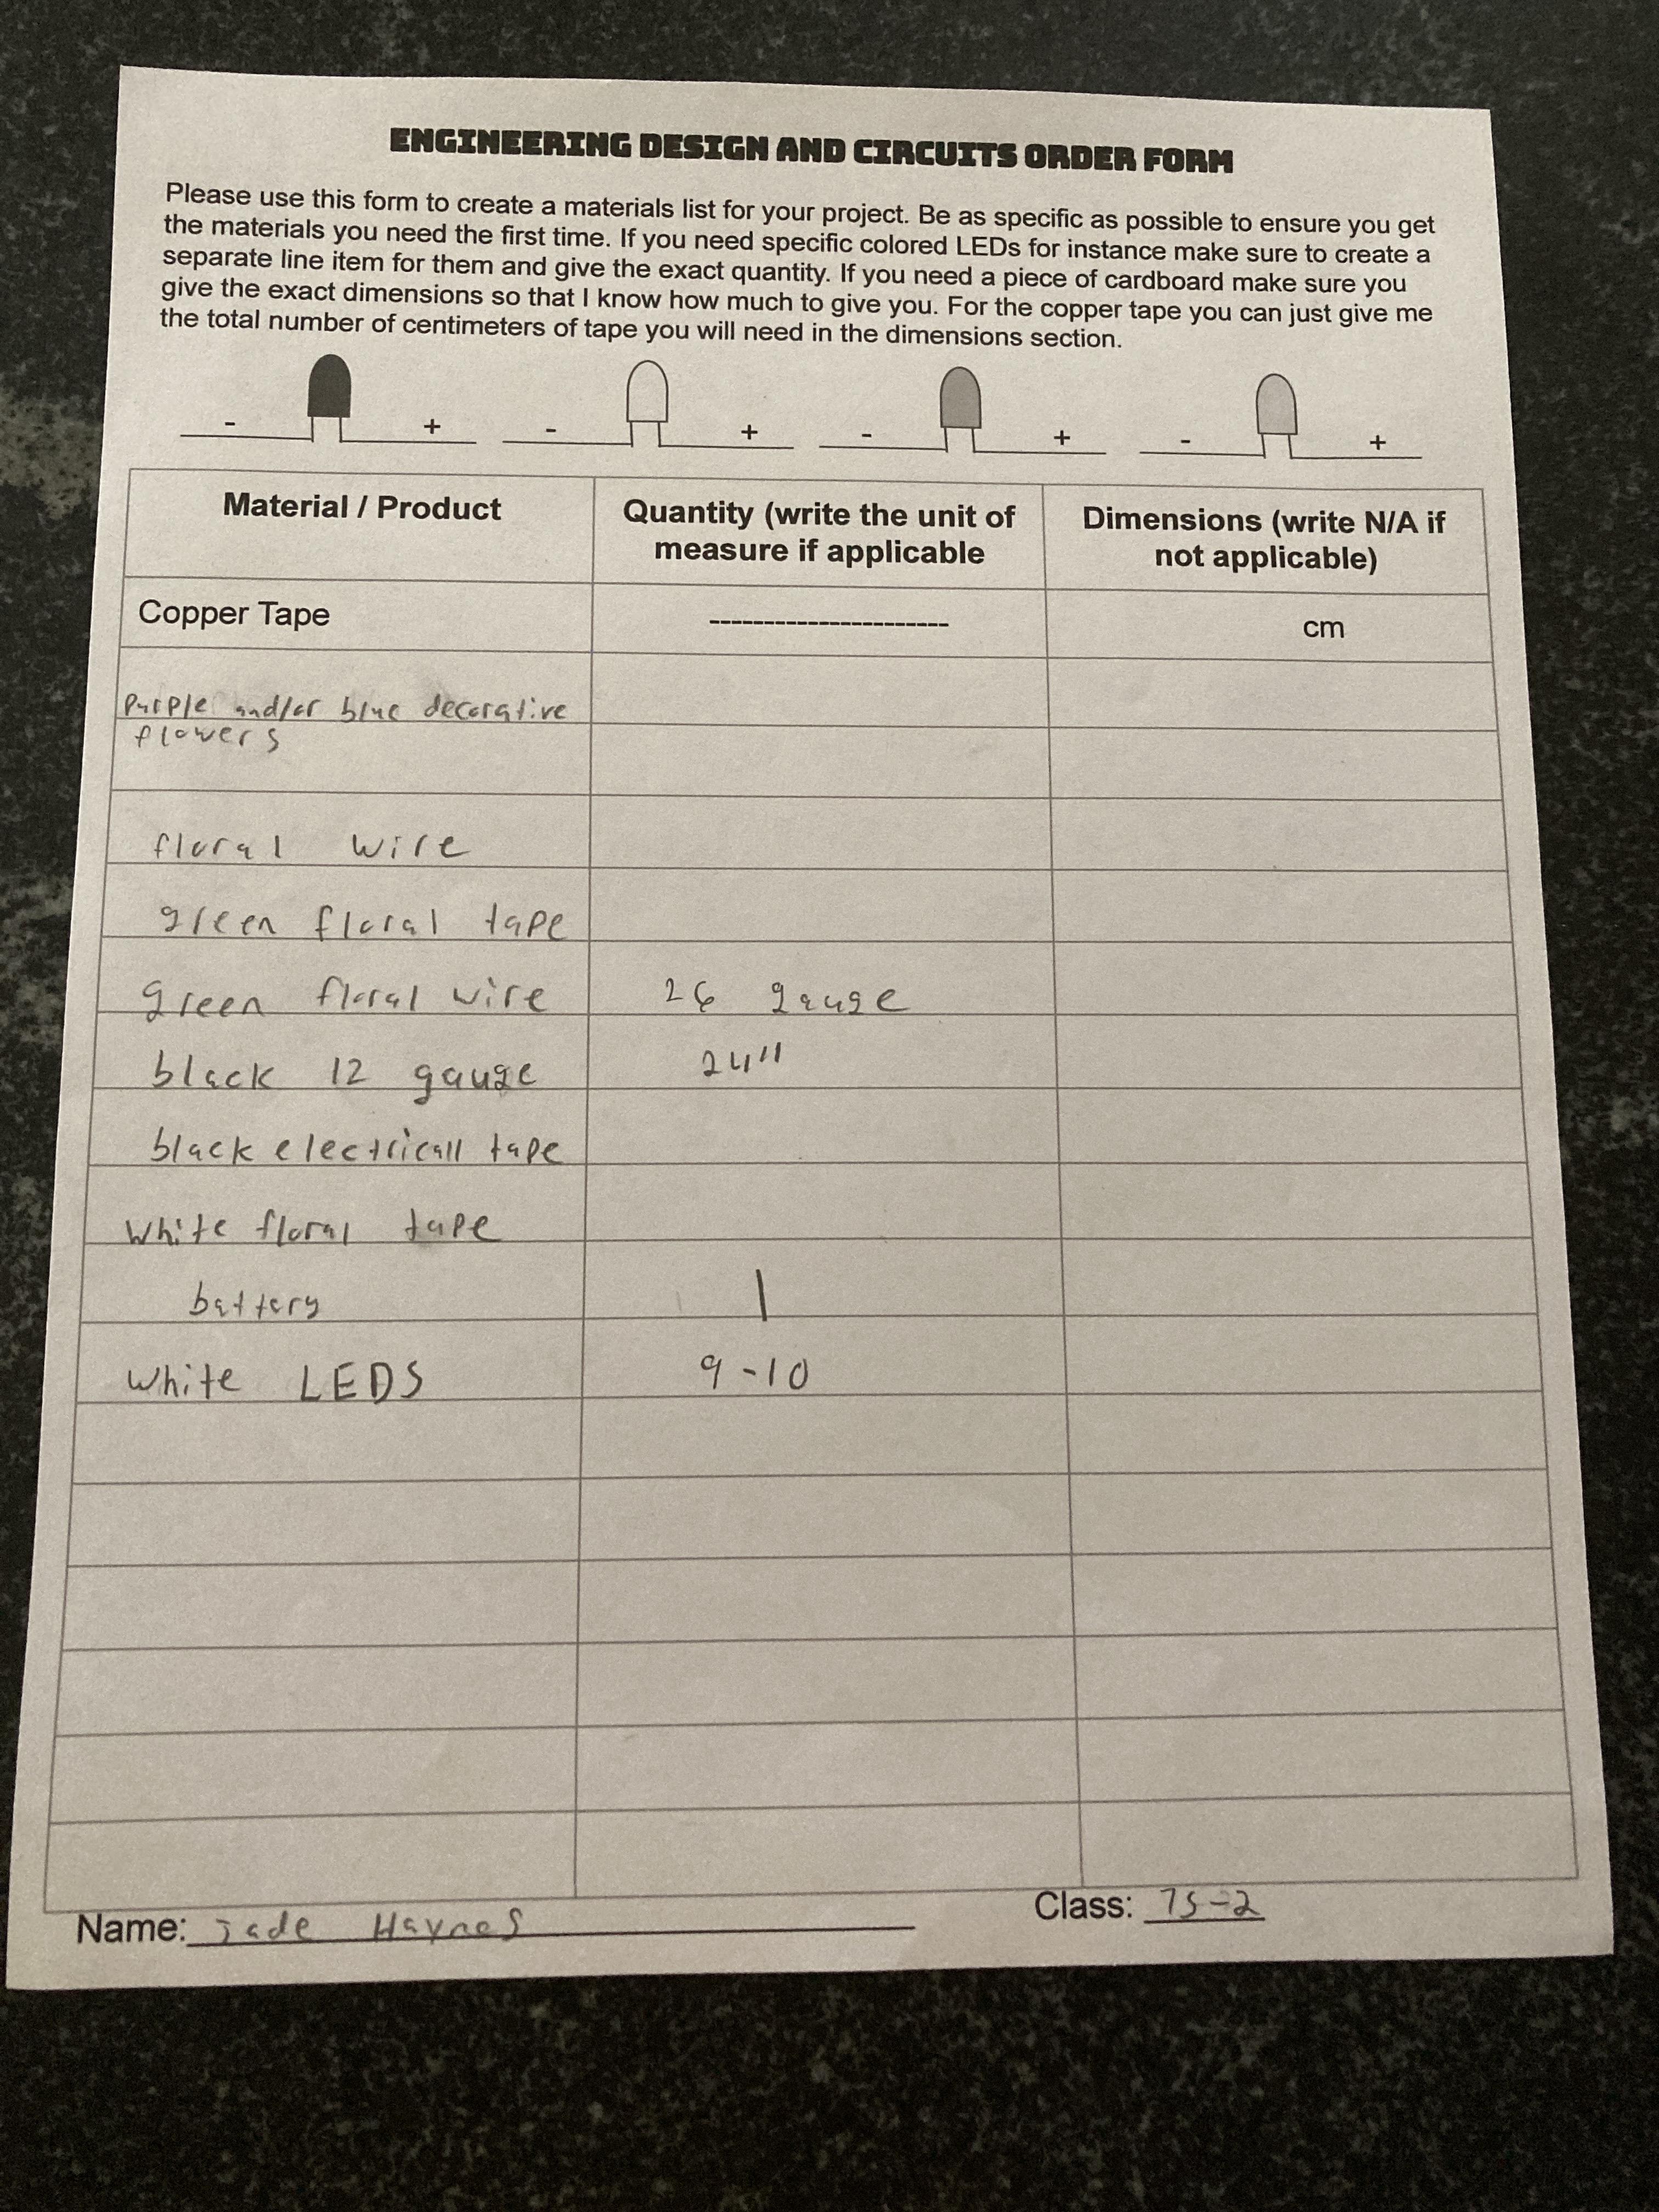 ENGINEERING DESIGN AND CIRCUITS ORDER FORM
Please use this form to create a materials list for your project. Be as specific as possible to ensure you get
the materials you need the first time. If you need specific colored LEDs for instance make sure to create a
separate line item for them and give the exact quantity. If you need a piece of cardboard make sure you
give the exact dimensions so that I know how much to give you. For the copper tape you can just give me
the total number of centimeters of tape you will need in the dimensions section.
- + - + - + - +
Material / Product
Quantity (write the unit of
measure if applicable
Dimensions (write N/A if
not applicable)
Copper Tape ---------------------- cm
purple and/or blue decorative
flowers
floral wire
green floral tape
green floral wire 26 gauge
black 12 gauge 24"
black electricall tape
white floral tape
battery 1
white LEDS 9-10
Name: Jade Haynes
Class: 7S-2